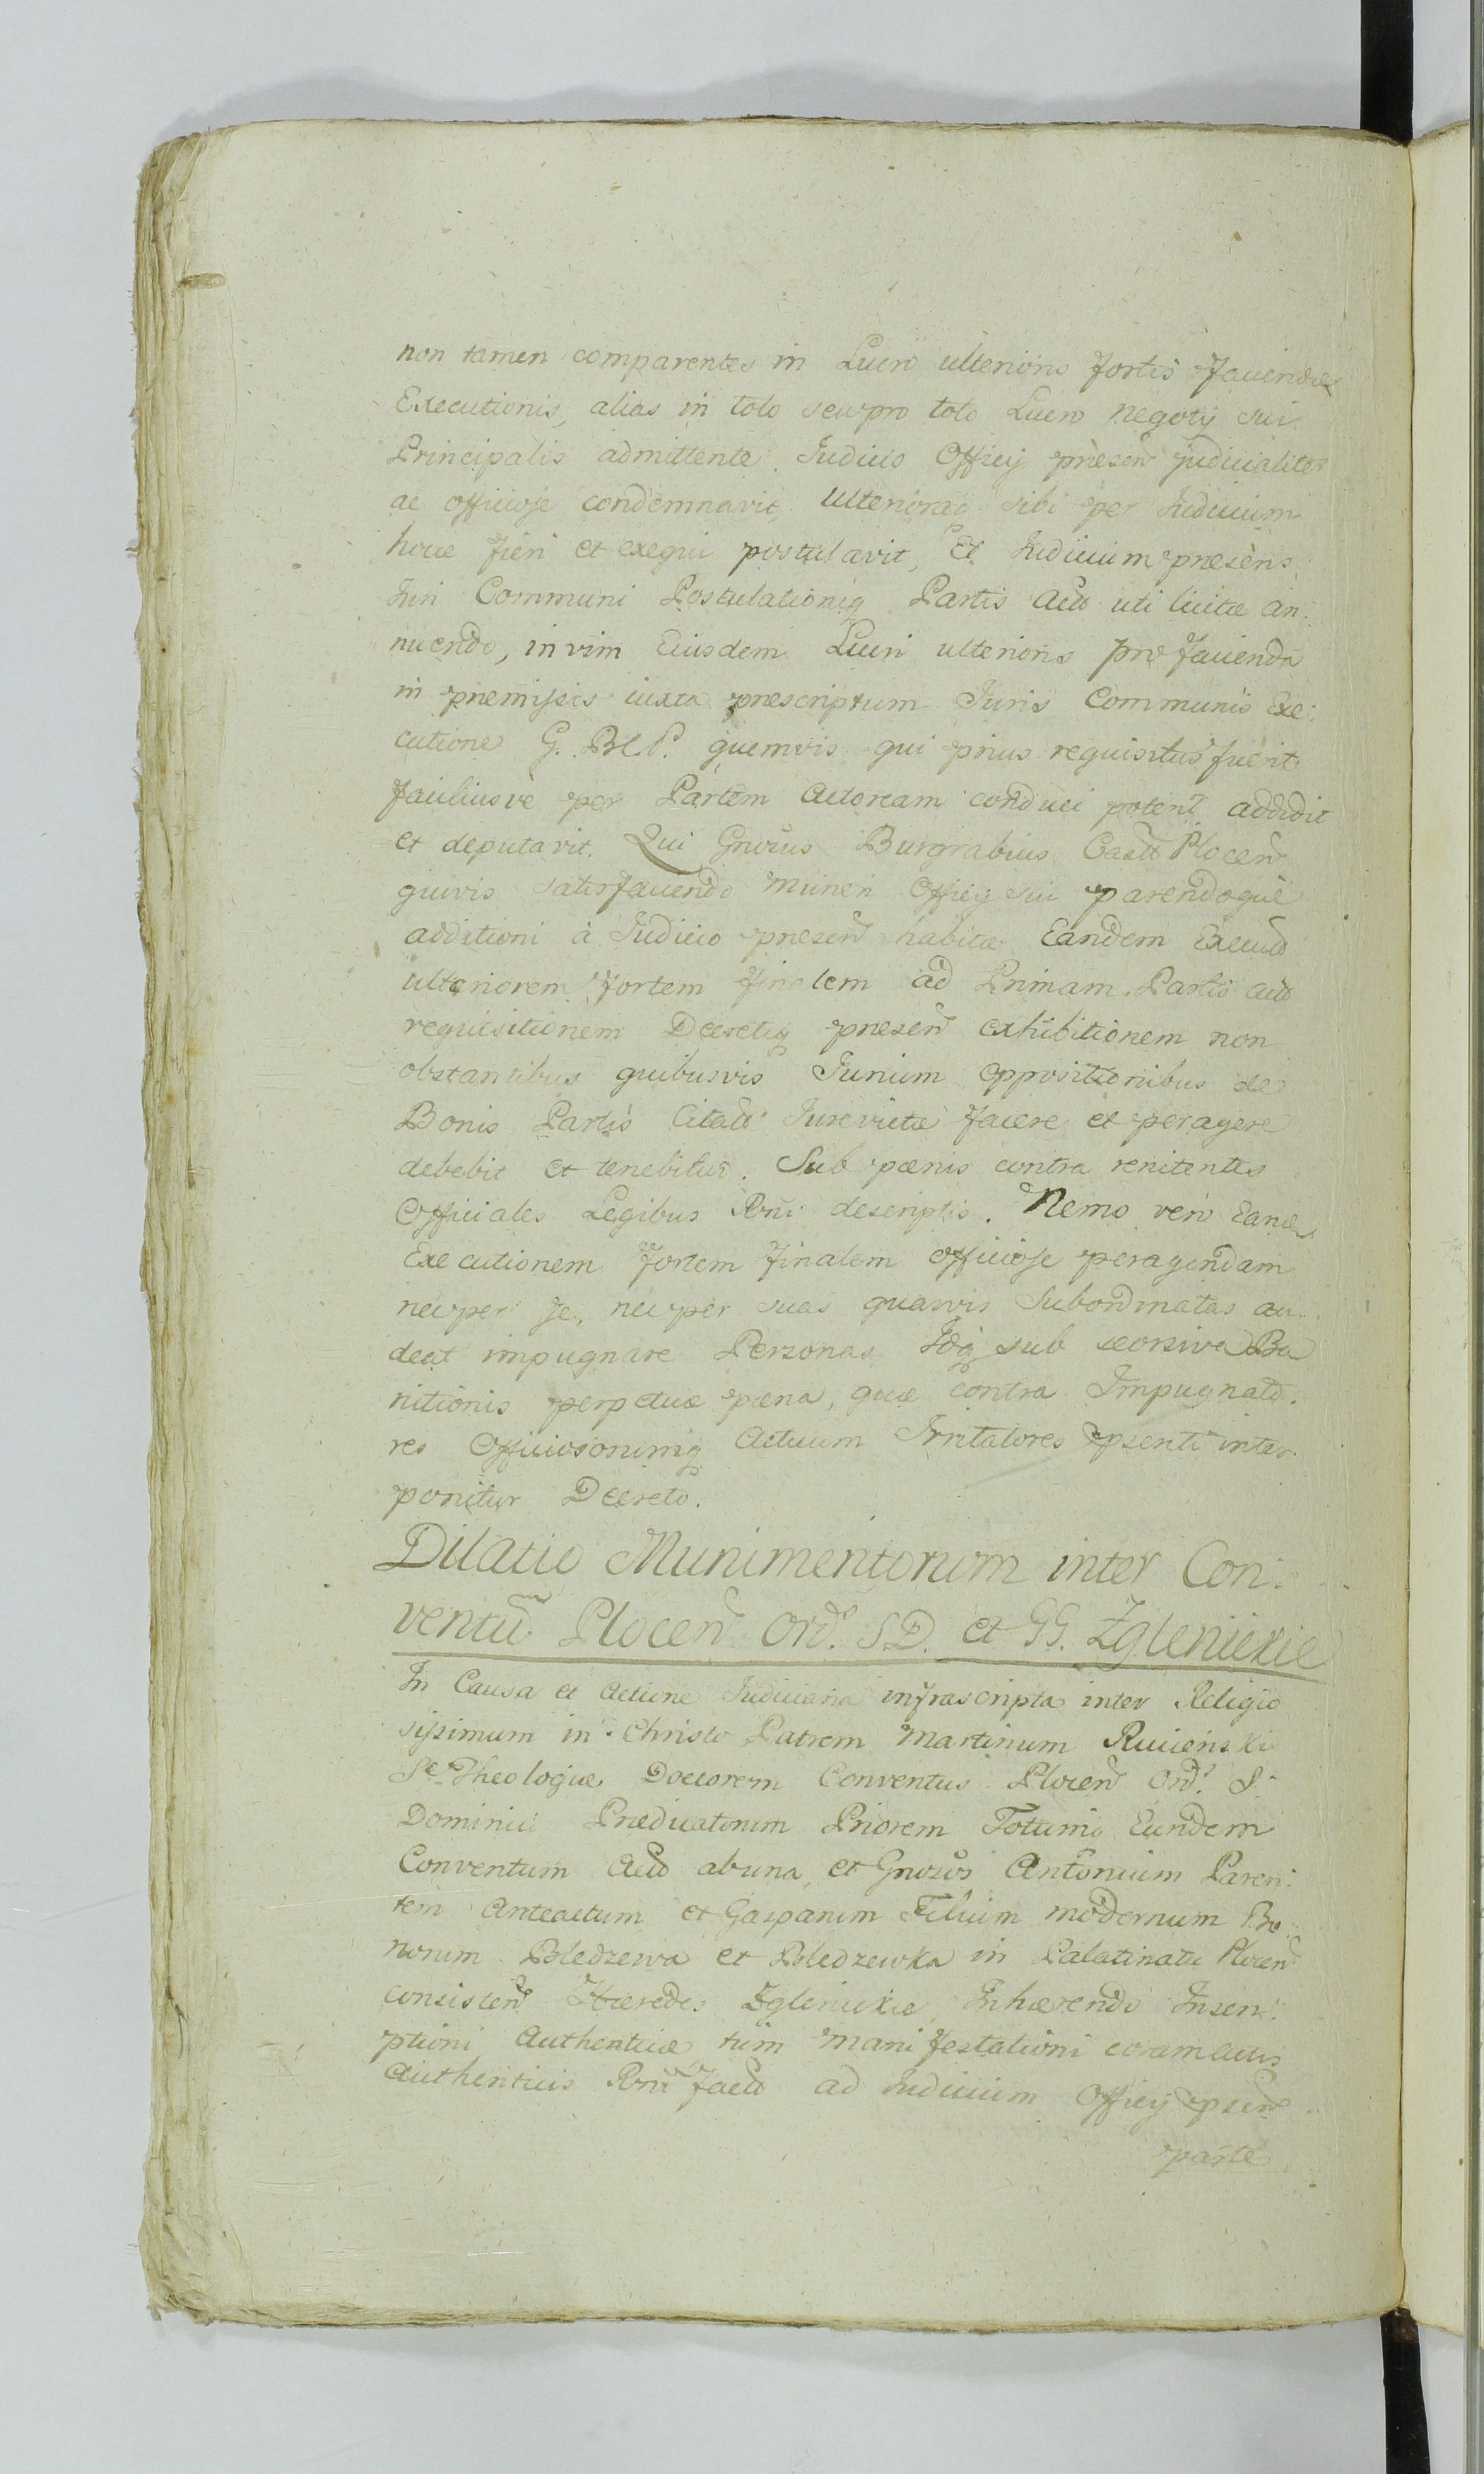 non tamen comparentes in Lucro ulterioris fortis faciendæ
Executionis, alias in toto seu pro toto Lucro negotij sui
Principalis admittente Iudicio Officij præsen judicialiter
ac officiose condemnavit, Ulterioraq sibi per Iudicium
hocce fieri et exequi postulavit, Et Iudicium præsens
Iuri Communi Postulationiq Partis Acto uti licitæ an:
nuendo, in vim Eiusdem Lucri ulterioris pro facienda
in præmissis iuxta præscriptum Iuris Communis Exe:
cutione G. B C P. quemvis qui prius requisitus fuerit
faciliusve per Partem Actoream conduci poterit addidit
et deputavit. Qui Gnosus Burgrabius Castr Plocen
quivis satisfaciendo muneri Officij sui parendoque
additioni à Iudicio præsen habitæ Eandem Execuo
ulteriorem fortem finalem ad Primam Partis Acto
requisitionem Decretiq præsen exhibitionem non
obstantibus quibusvis Iurium oppositionibus de
Bonis Partis Citato Iurevictæ facere et peragere
debebit et tenebitur. Sub pœnis contra renitentes
Officiales Legibus Rni descriptis. Nemo vero Eand
Executionem fortem finalem officiose peragendam
nec per se, nec per suas quasvis Subordinatas au
deat impugnare Personas Idq sub seorsiva Ba
nitionis perpetuæ pœna, quæ contra Impugnato.
res Officiosorumq Actuum Irritatores psenti inter
ponitur Decreto.
Dilatio Munimentorum inter Con:
ventũ Plocen Ord. S D. et GG. Zglenickie
In Causa et Actione Iudiciaria infrascripta inter Religio
sissimum in Christo Patrem Martinum Ruciński
Sæ Theologiæ Doctorem Conventus Plocen Ord. S.
Dominici Prædicatorum Priorem Totumq Eundem
Conventum Acto ab una, et Gnosos Antonium Paren:
tem Anteactum et Gasparum Filium modernum Bo:
norum Bledzewa et Bledzewka in Palatinatu Plocen
consisten Hæredes Zglenickie, Inhærendo Inscri:
ptioni Authenticæ tum Manifestationi coram Actis
Authenticis Rni facto ad Iudicium Officij psens
parte